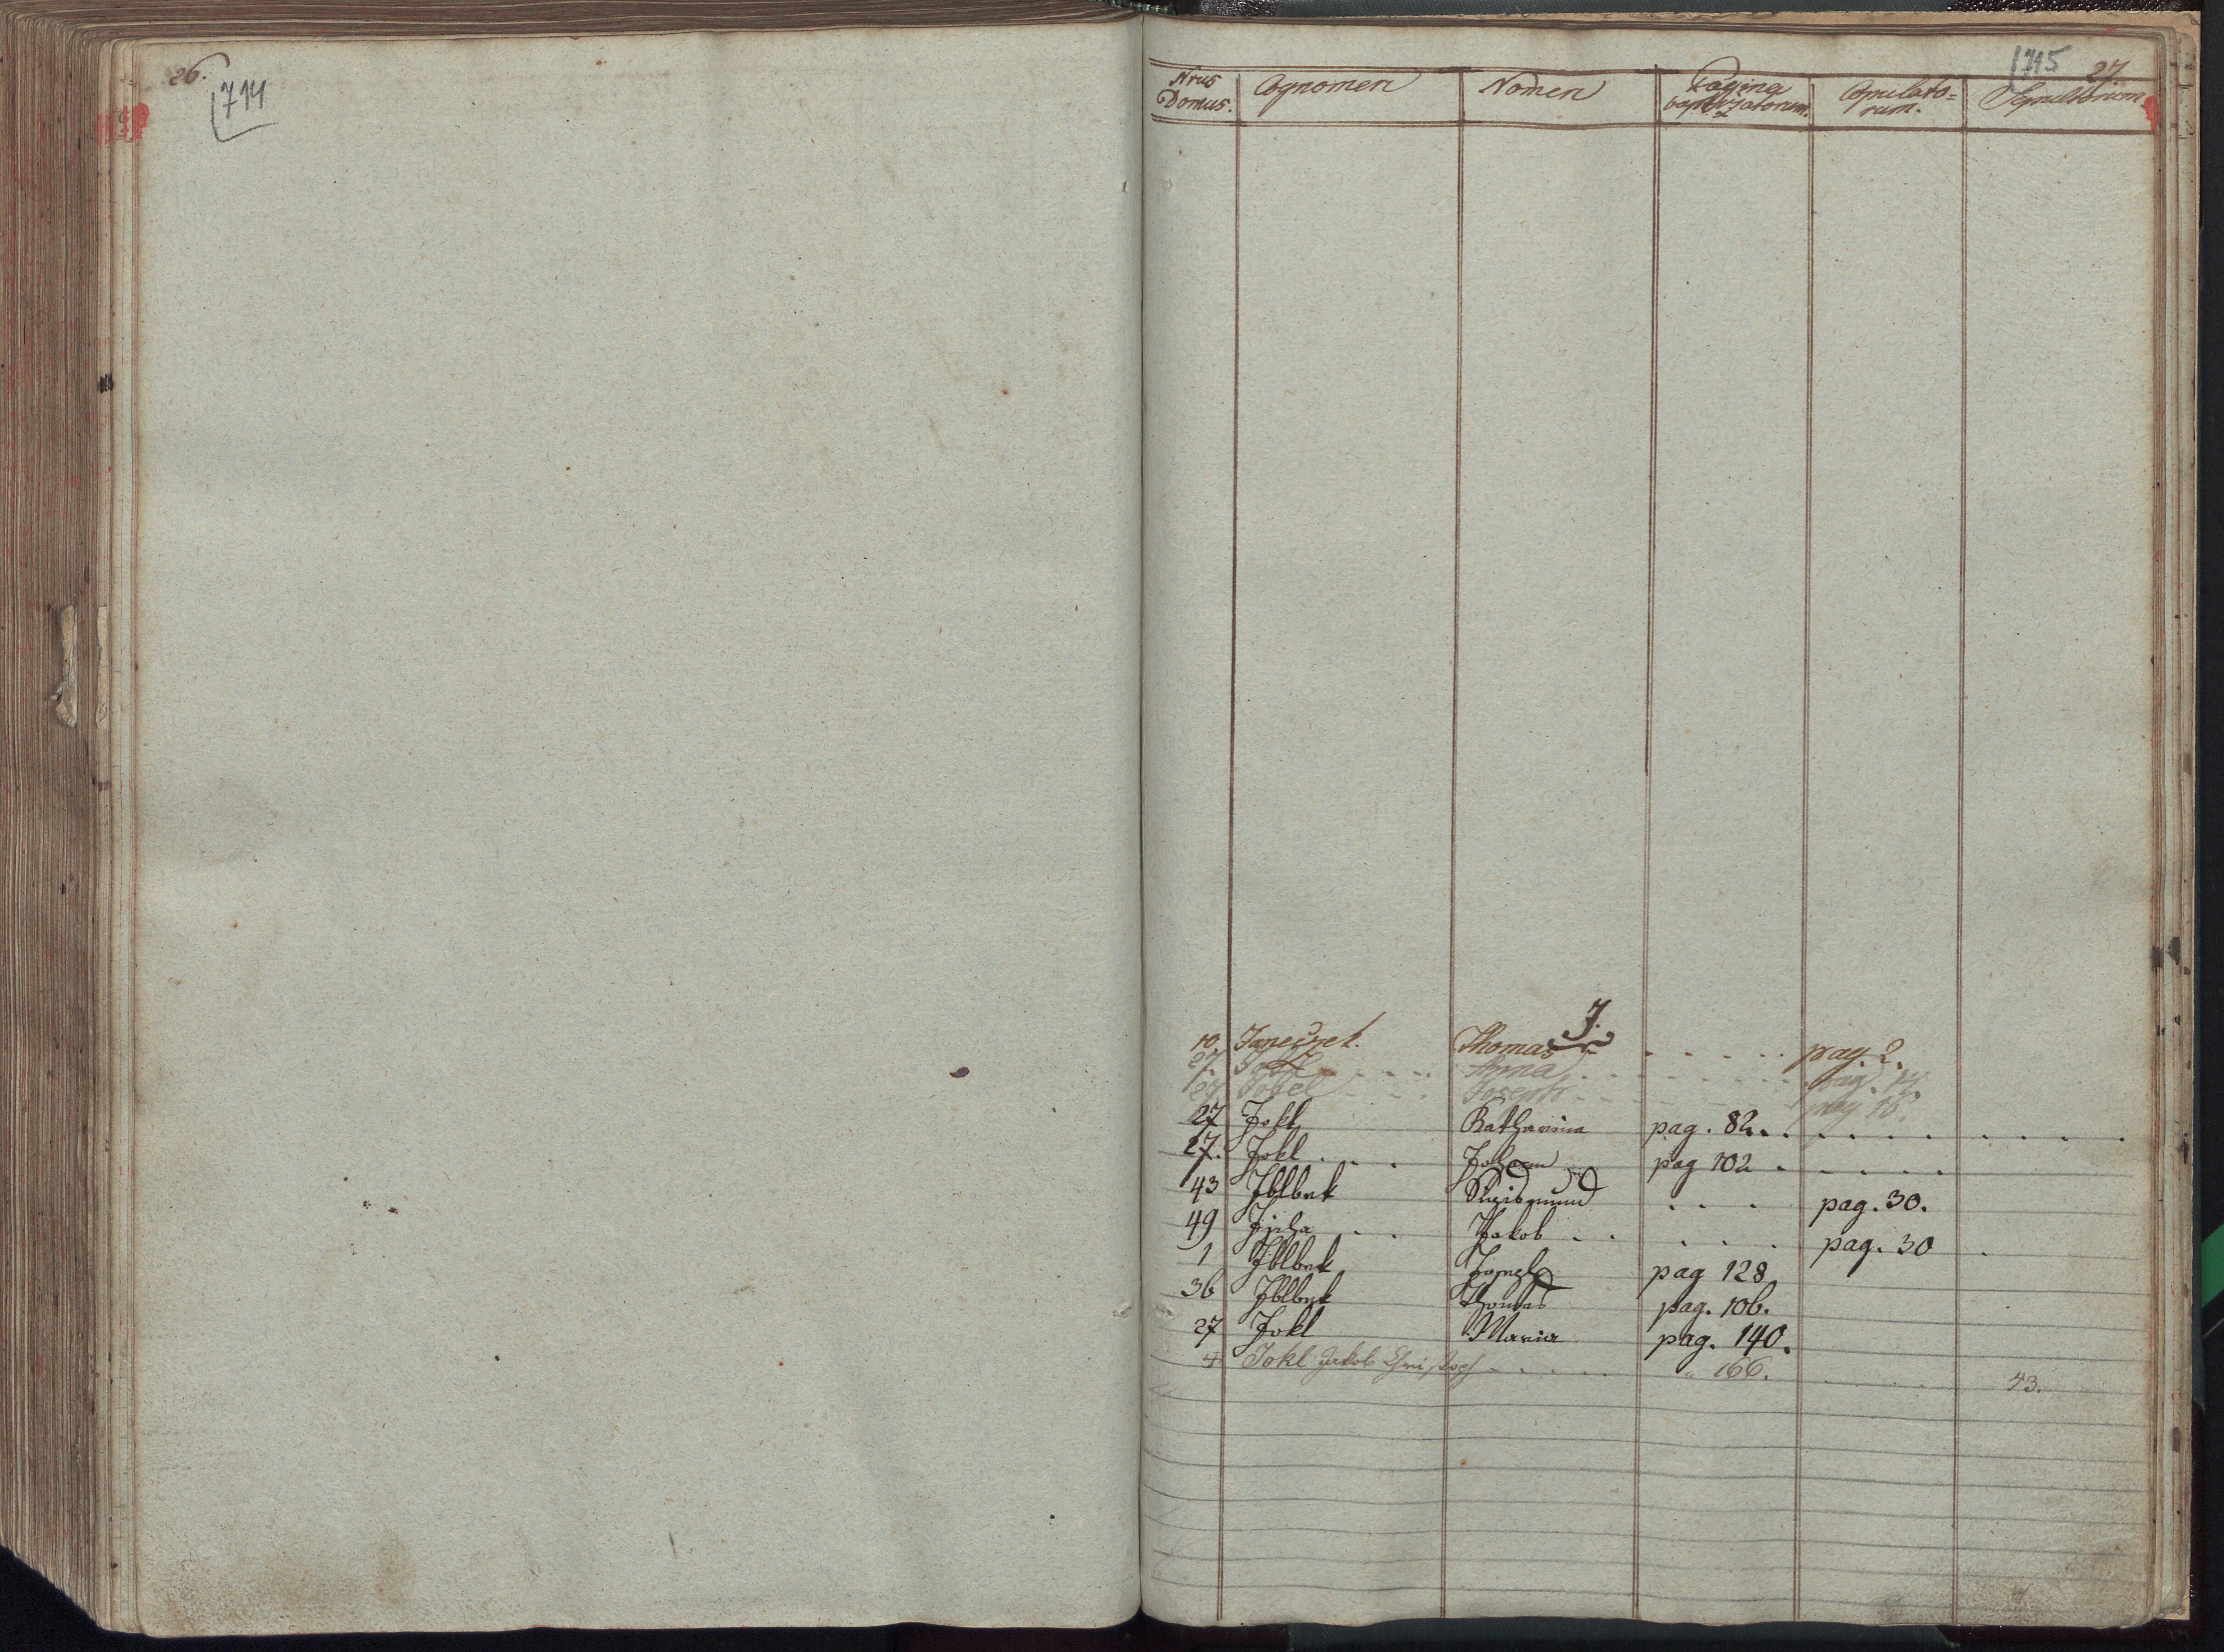 26.
714
1715 27.
Nrus Domus. Cognomen Nomen Pagina baptizatorum. Copulatorum. Sepultorum.
J.
10. Janeczek. Thomas - - - - - pag. 2.
27. Anna - - - - - pag. 14.
27. Jokel - - - Joseph - - - - - pag. 16.
27 Jokl Katharina pag. 82. . . . . . . .
27. Jokl . . . Johann pag 102 . - - - -
43 Jblbek Sigismund . . . pag. 30.
49 Jakob . . . . . pag. 30 .
1 Jblbek Joseph pag 128
36 Jblbek Thomas pag. 106.
27 Jokl Maria pag. 140.
4 Jokl Jakob Christoph - - - - - " 166. - - - - 43.